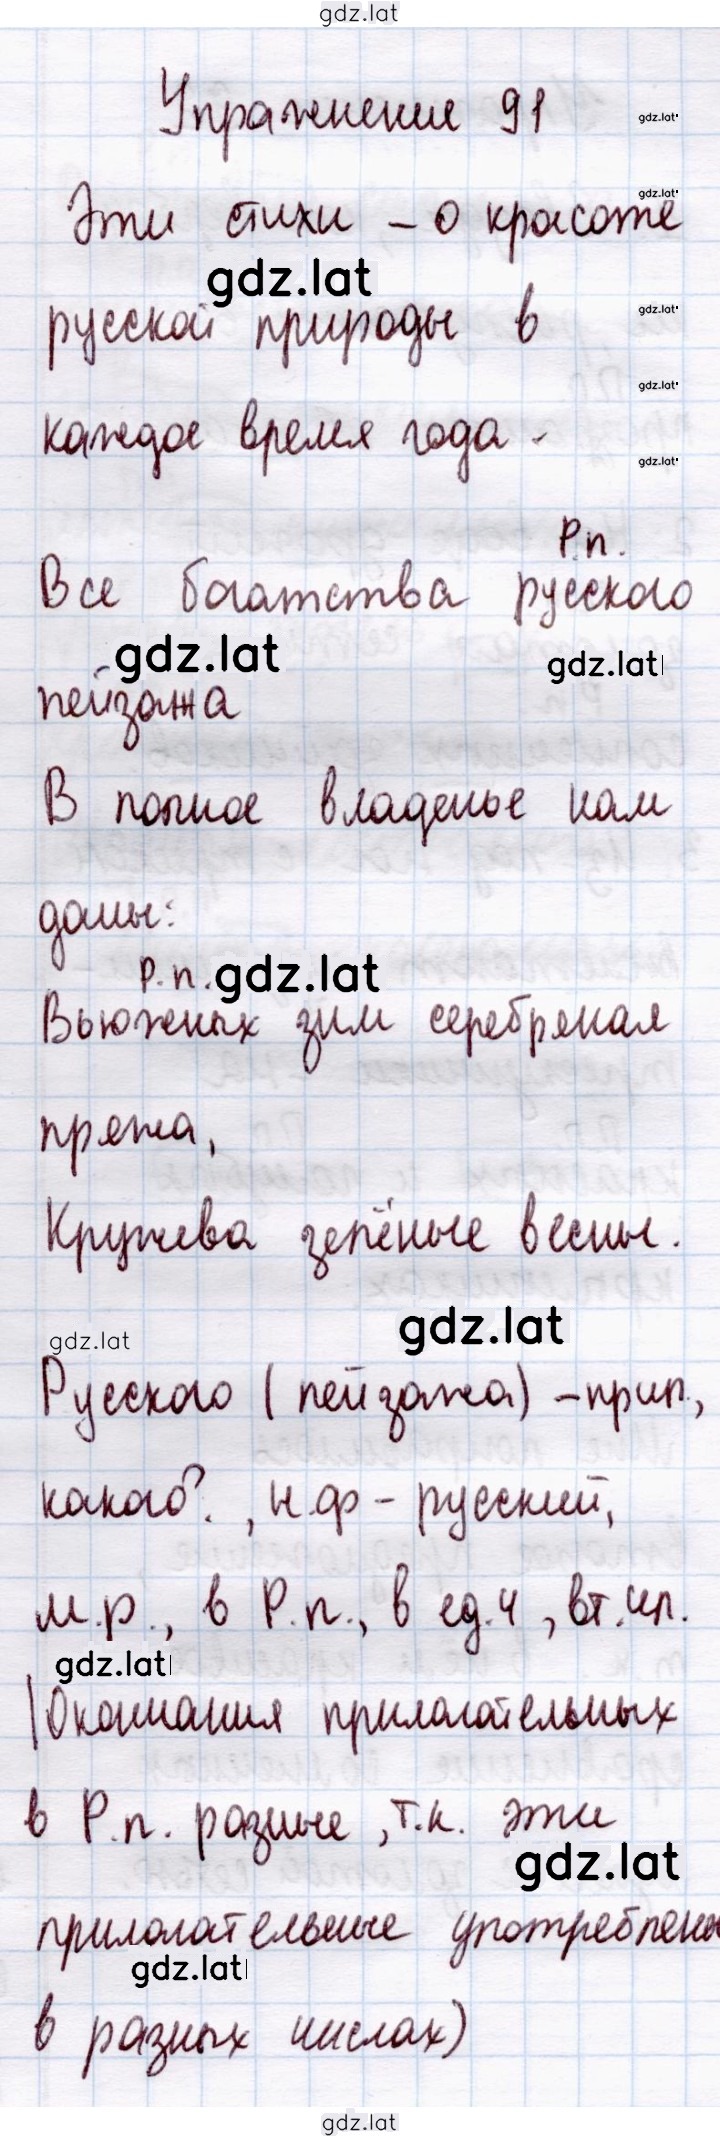 gdz.lat
Упражнение 91
gdz.lat
Эти стихи – о красоте
gdz.lat
gdz.lat
русской природы в
gdz.lat
gdz.lat
каждое время года.
gdz.lat
Р.п.
Все богатства русского
gdz.lat
gdz.lat
пейзажа
В полное владенье нам
даны:
Р.п. gdz.lat
Вьюжных зим серебряная
пряжа,
Кружева зелёные весны.
gdz.lat
gdz.lat
Русского (пейзажа) – прил.,
какого?, н.ф – русский,
м.р., в Р.п., в ед.ч, вт.чл.
gdz.lat
(Окончания прилагательных
в Р.п. разные, т.к. эти
gdz.lat
прилагательные употреблены
gdz.lat
в разных числах)
gdz.lat